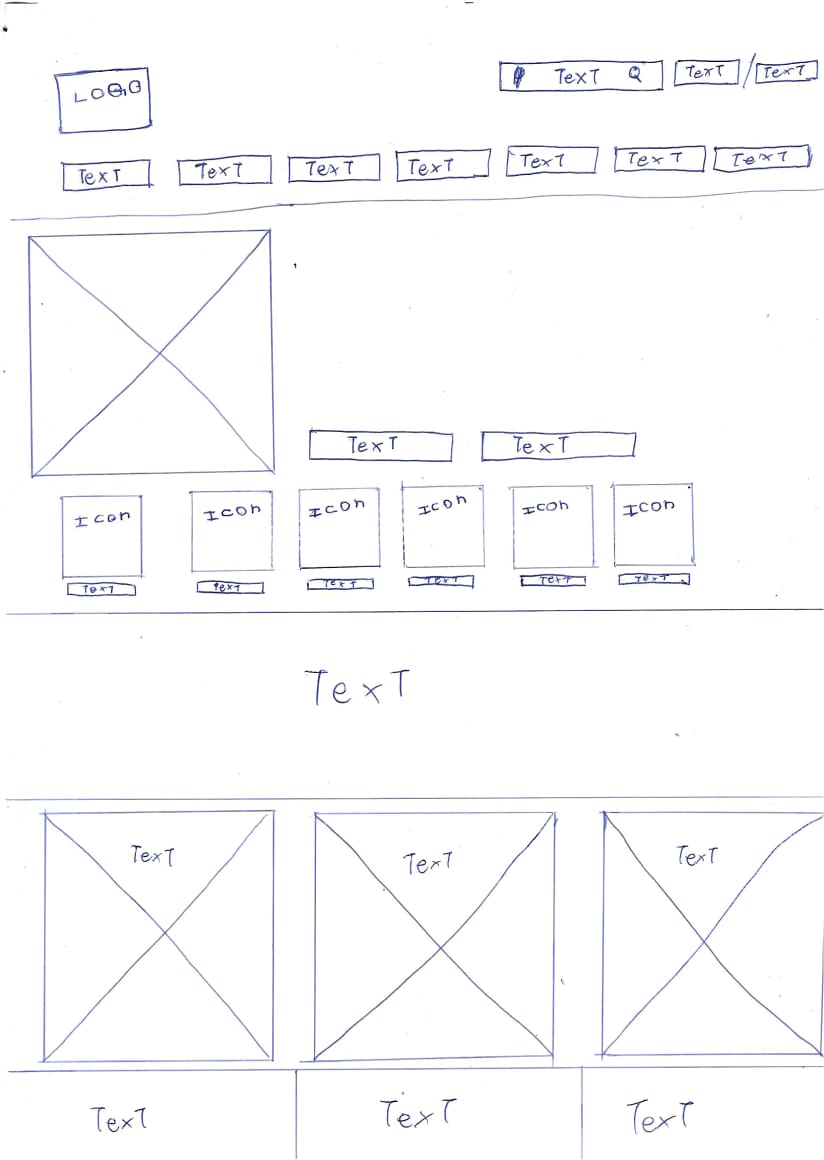 LOGO
TexT Q TexT / TexT
TexT TexT TexT TexT TexT TexT TexT
TexT TexT
Icon Icon Icon Icon Icon Icon
TexT TexT TexT TexT TexT TexT
TexT
TexT TexT TexT
TexT TexT TexT